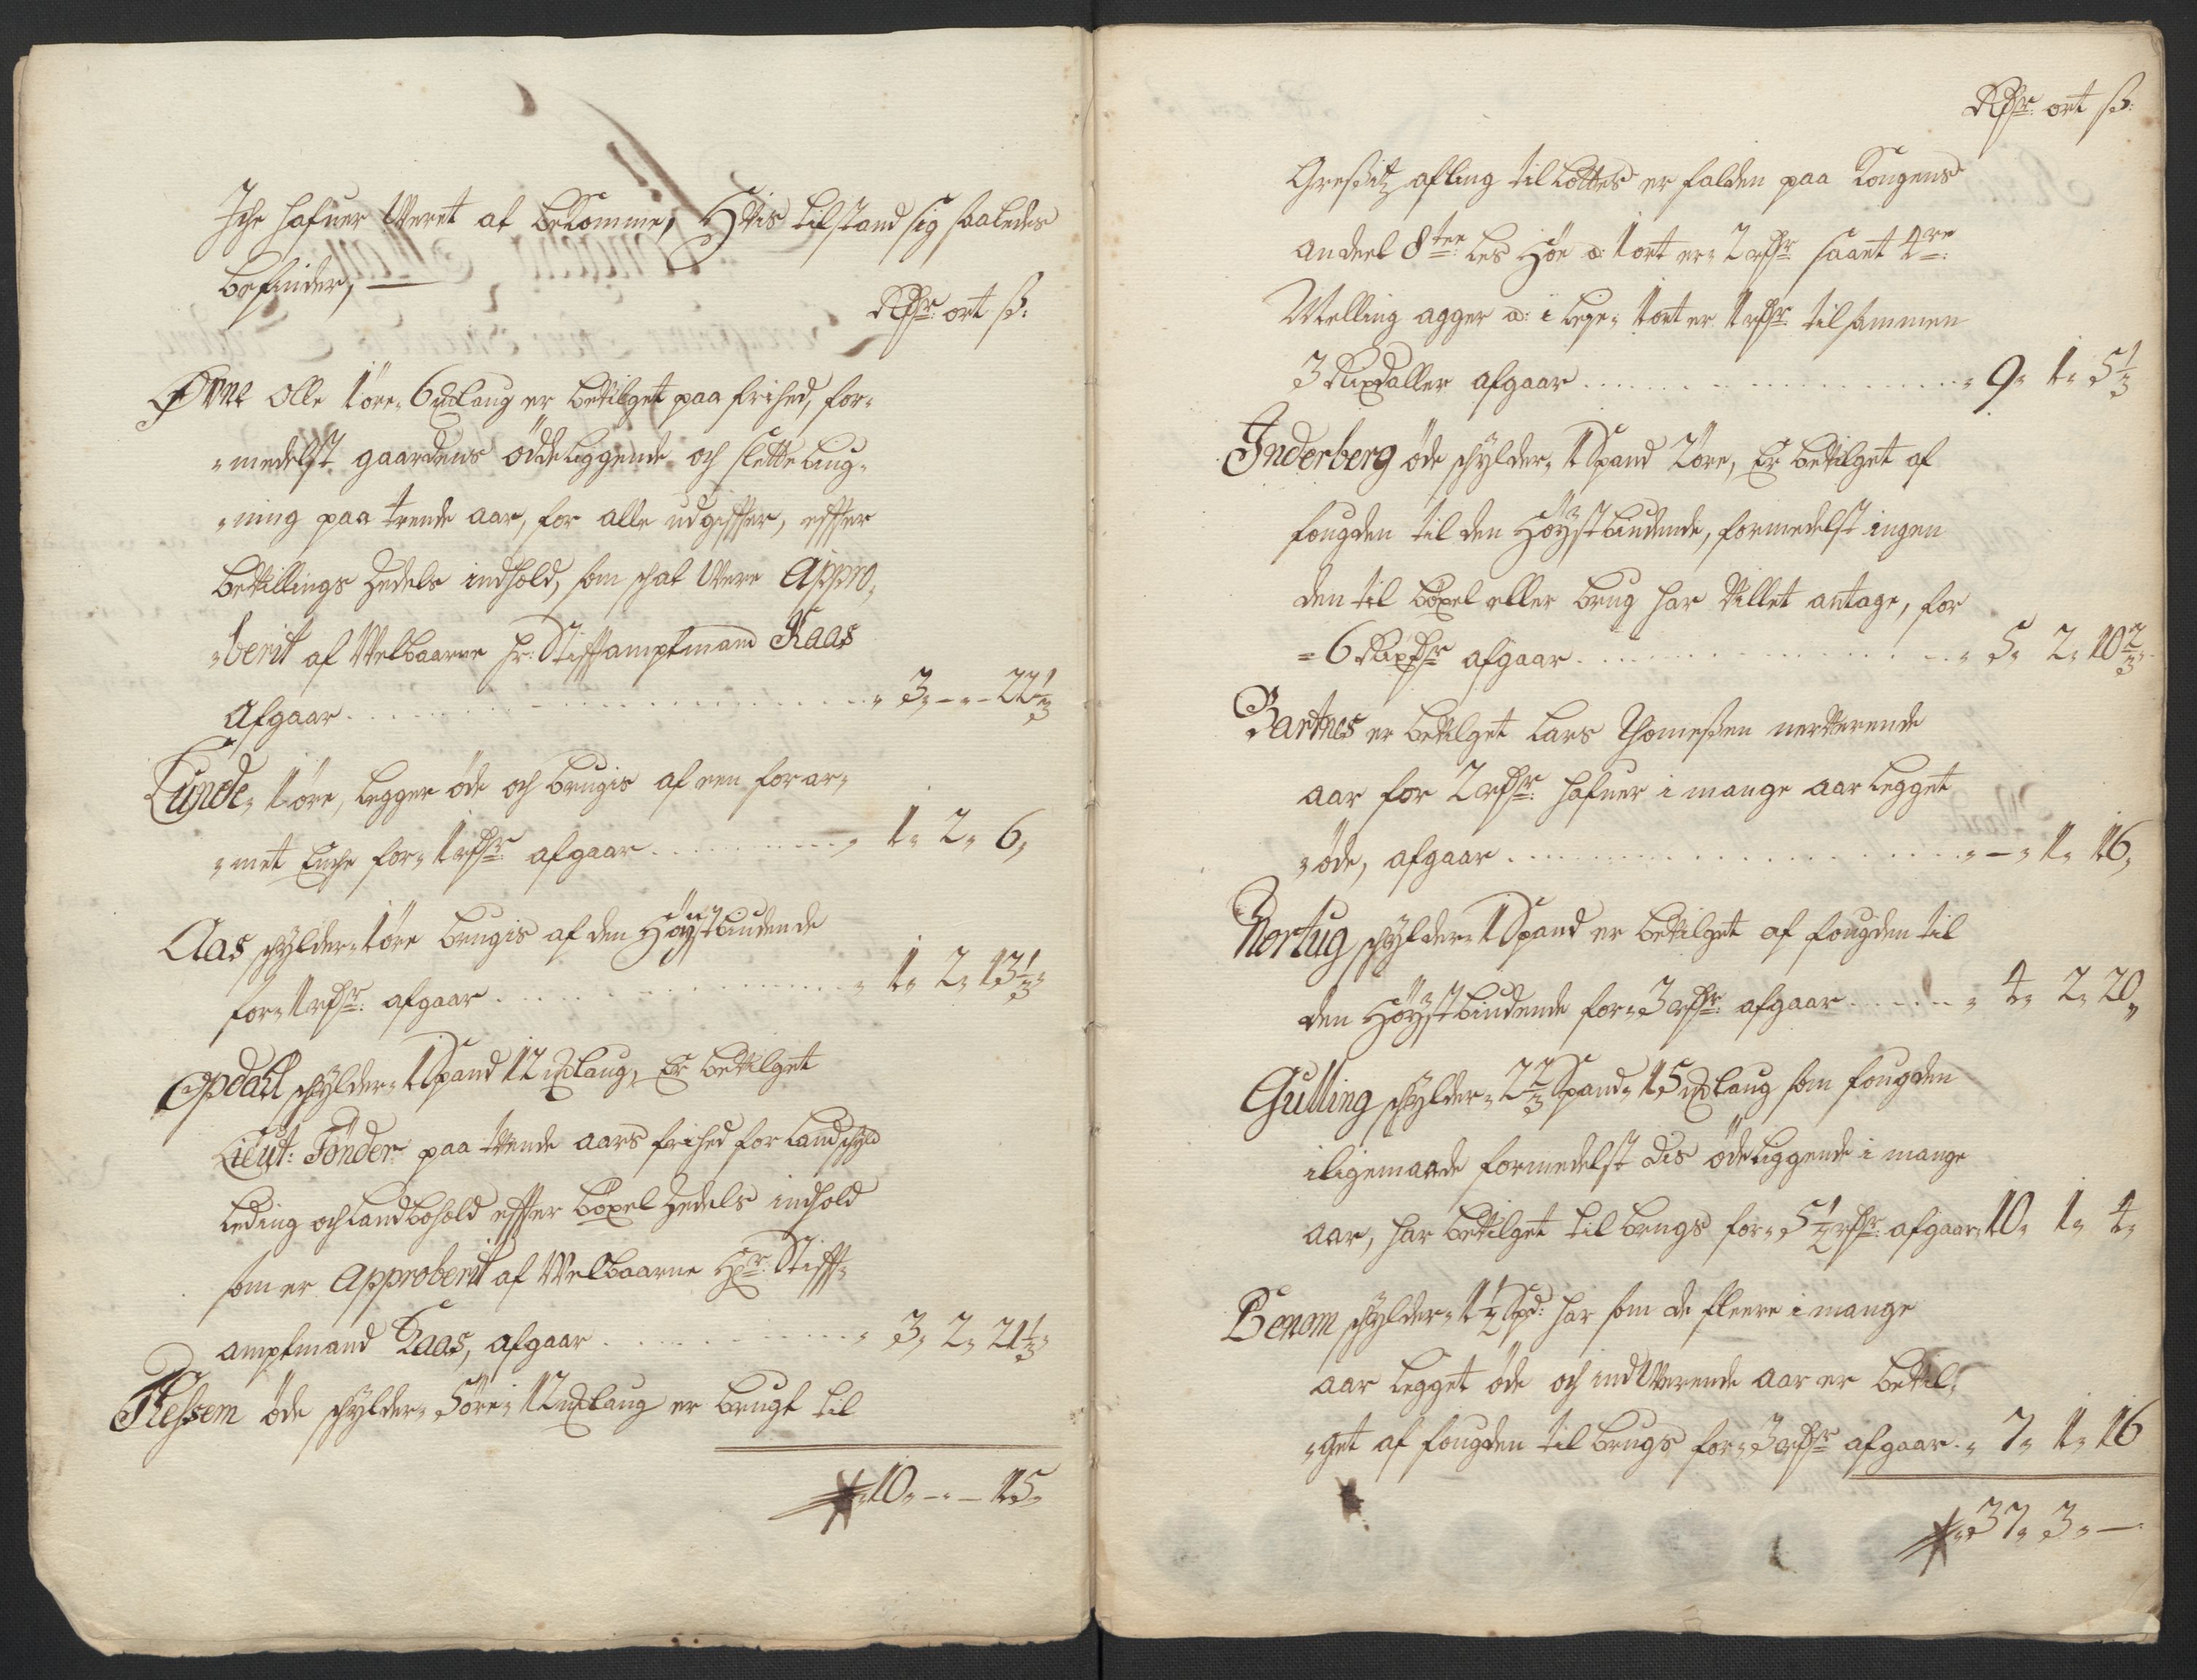 Iche hafuer Veret at bekomme, Hvis tilstand sig saaledes
befinder,
Rdr ort ß:
Ørne Olle 1 øre 6 mlaug er bevilget paa frihed, for-
medelst gaardens øddeliggende och slette bug-
ning paa trende aar, for alle udgiffter, effter
bevillings Zedels indhold, som schal Vere Appro-
berit af Velbaarne hr: Stifftamptmand Kaas
afgaar . . . 3 - - 22 1/3
Lunde 1 øre, legger øde och brugis af een forar-
met Enche for 1 rdr afgaar . . . 1 2 6
Aas schylder 1 øre brugis af den Høystbiudende
for 1 rdr: afgaar . . . 1 2 13 1/3
Opdahl schylder 1 Spand 12 mlaug, Er bevilget
Lieut: Tønder paa trende aars frihed for Landschyld
Leding och Landbohold effter bøxel Zedels indhold
som er Approberit af Velbaarne Hr: Stifft-
amptmand Kaas, afgaar . . . 3 2 21 1/3
Flessem øde schylder 5 øre 12 mlaug er brugt til
10 - - 15
Rdr ort ß:
Gressitz afling til Lottes er falden paa Kongens
andeel 8ten: les Høe a: 1 ort er 2 rdr saaet 4re:
Melling agger a: i leye 1 ort er 1 rdr tilsammen
3 Rixdaller afgaar . . . 9 1 5 1/3
Inderberg øde schylder 1 Spand 2 øre, Er bevilget af
fougden til den Høystbiudende, formedelst ingen
den til bøxel eller brug har Villet antage, for
6 Rixdr afgaar . . . 5 2 10 2/3
Bartnes er bevilget Lars Thomeßen nerverende
aar for 2 rdr: hafuer i mange aar legget
øde, afgaar . . . - 1 16
Nortug schylder 1 Spand er bevilget af fougden til
den Høystbiudende for 3 rdr: afgaar . . . 4 2 20
Gulling schylder 2 2/3 Spand 15 mlaug som fougden
iligemaade formedelst dis ødeliggende i mange
aar, har bevilget til brugs for 5 1/2 rdr: afgaar 10 1 4
Benom schylder 1 1/2 Spd: har som de fleere i mange
aar legget øde och indVerende aar er bevil-
get af fougden til brugs for 3 rdr afgaar . 7 1 16
37 3 -